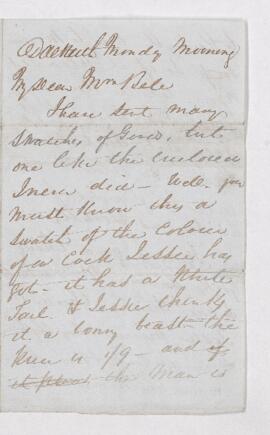 Dalkeith Monday Morning
My Dear Mrs Bell
I have sent many
swatches of Gowns, but
one like the enclosed
I never did – Well you
must know this is a
swatch of the Colour
of a Cock Jessie has
got – it has a White
Tail & Jessie thinks
it a bonny beast – the
price is 1/9 – and if
the Man is